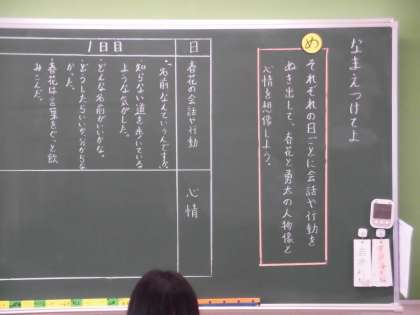 なまえつけてよ
め
それぞれの日ごとに会話や行動を
ぬき出して、春花と勇太の人物像と
心情を想像しよう。
日
春花の会話や行動
心情
1日目
・名前、なんていうんですか。
・知らない道を歩いている
ような気がした。
・どんな名前がいいかな。
・どうしたらいいか、分からな
かった。
・春花は言葉をぐっと飲
みこんだ。